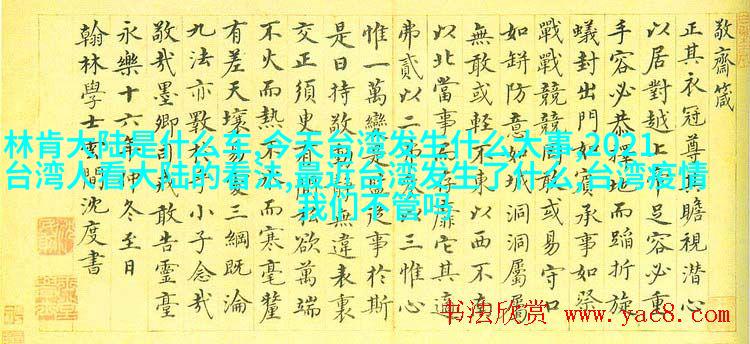 敬齋箴
正其衣冠尊其瞻視潛心
以居對越上足容必重
手容必恭擇地而蹈折旋
蟻封出門如賓承事如祭
戰戰兢兢敢或易守口
如缾防意如城洞洞屬屬
無敢或輕不東以西不南
以北當事存靡它其適
弗貳以二三惟心
惟一萬變是監從事於斯
是日持敬動無違表裏
交正須有私欲萬端
不火而熱不而寒毫釐
有差天壤易三綱既淪
九法亦斁於小子念哉
敬哉墨卿司敢告靈臺
永樂十六年仲冬至日
翰林學士雲間沈度書
林肯大陆是什么车,今天台湾发生什么大事,2021
台湾人看大陆的看法,最近台湾发生了什么,台湾疫情
我们不管吗
书法欣赏
www.yac8.com